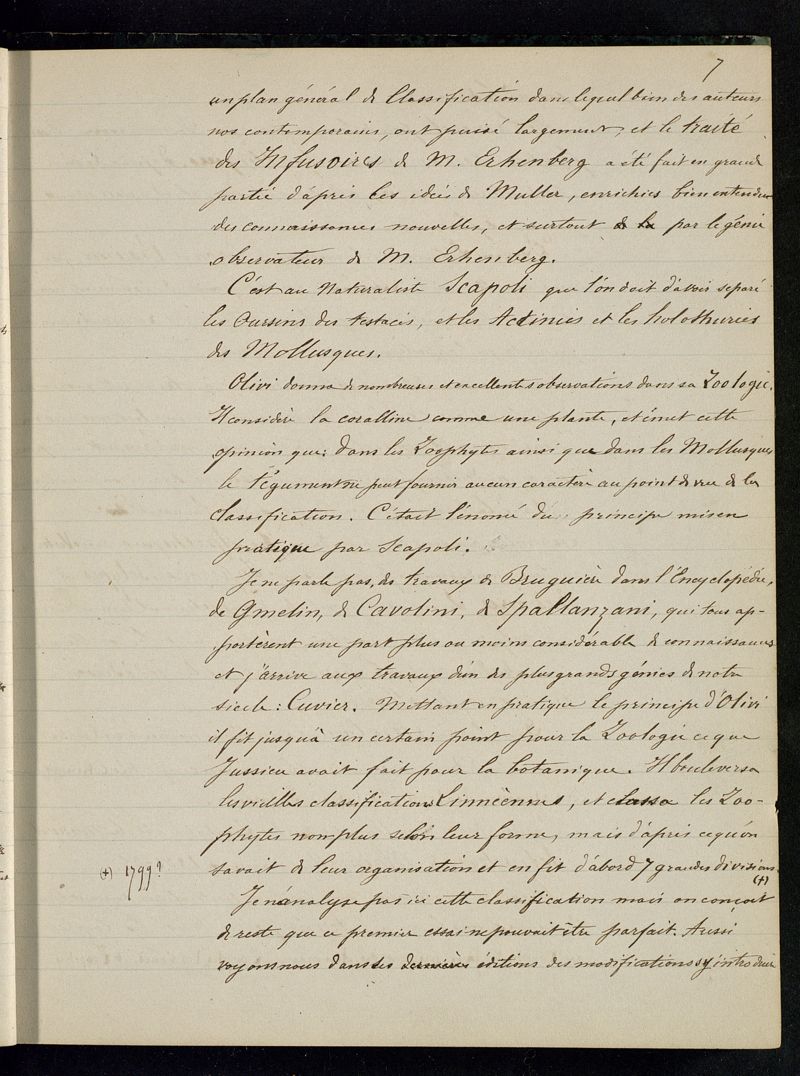 7
un plan général de Classification dans lequel bien des auteurs
nos contemporains, ont puisé largement, et le traité
des Infusoires de M. Erhenberg a été fait en grande
partie d'après les idées de Muller, enrichies bien entendu
des connaissances nouvelles, et surtout de la par le génie
observateur de M. Erhenberg.
C'est au Naturaliste Scapoli que l'on doit d'avoir séparé
les Oursins des testacés, et les Actinies et les holothuries
des Mollusques.
Olivi donna de nombreuses et excellentes observations dans sa Zoologie.
Il considère la coralline comme une plante, et émet cette
opinion que: dans les Zoophytes ainsi que dans les Mollusques
le tégument ne peut fournir aucun caractère au point de vue de la
classification. C'était l'énoncé du principe mis en
pratique par Scapoli.
Je ne parle pas, des travaux de Bruguière dans l'Encyclopédie,
de Gmelin, de Cavolini, de Spallanzani, qui tous ap-
portèrent une part plus ou moins considérable de connaissances
et j'arrive aux travaux d'un des plus grands génies de notre
siècle: Cuvier. Mettant en pratique le principe d'Olivi
il fit jusqu'à un certain point pour la Zoologie ce que
Jussieu avait fait pour la botanique. Il bouleversa
les vieilles classifications Linnéennes, et classa les Zoo-
phytes non plus selon leur forme, mais d'après ce qu'on
savait de leur organisation et en fit d'abord 7 grandes divisions.
(+)
(+) 1799?
Je n'analyse pas ici cette classification mais on conçoit
de reste que ce premier essai ne pouvait être parfait. Aussi
voyons nous dans les dernières éditions des modifications s'y introduire